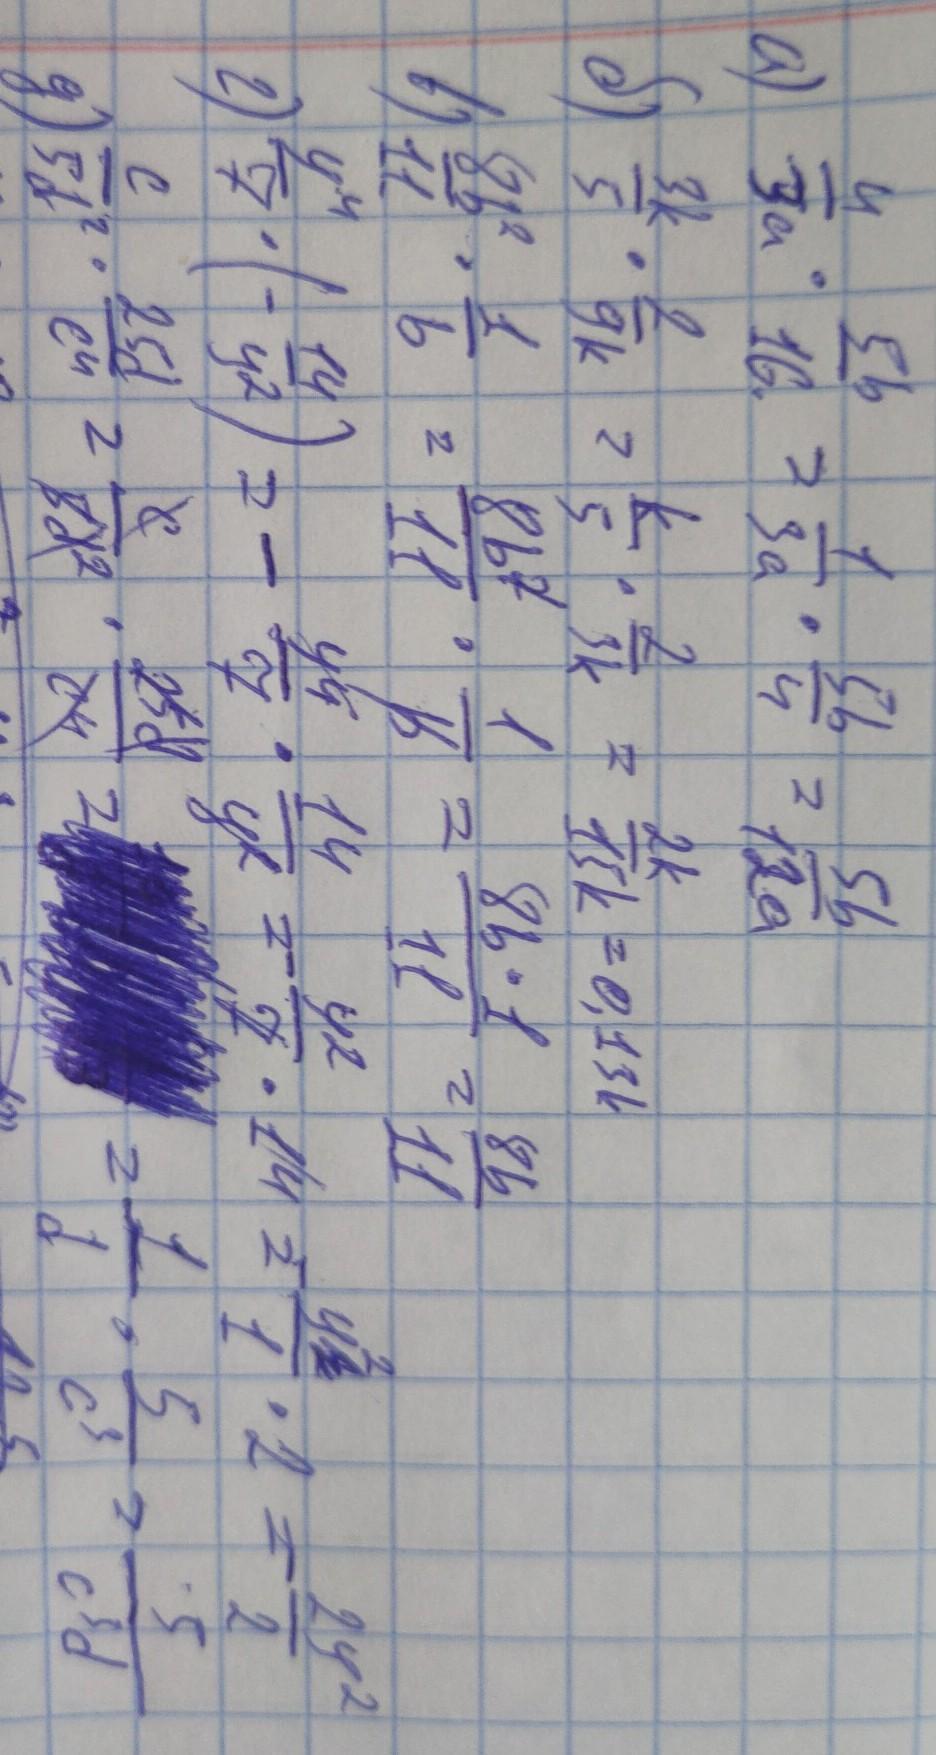 а) 4/3a · 5b/16 = 1/3a · 5b/4 = 5b/12a
б) 3k/5 · 2/9k = k/5 · 2/3k = 2k/15k = 0,13k
в) 8b²/11 · 1/b = 8b²/11 · 1/b = 8b·1/11 = 8b/11
г) y⁴/7 · (- 14/y²) = - y⁴/7 · 14/y² = - y²/7 · 14 = - y²/1 · 2 = - 2y²/2
д) c/5d² · 25d/c⁴ = c/5d² · 25d/c⁴ = = 1/d · 5/c³ = 5/c³d